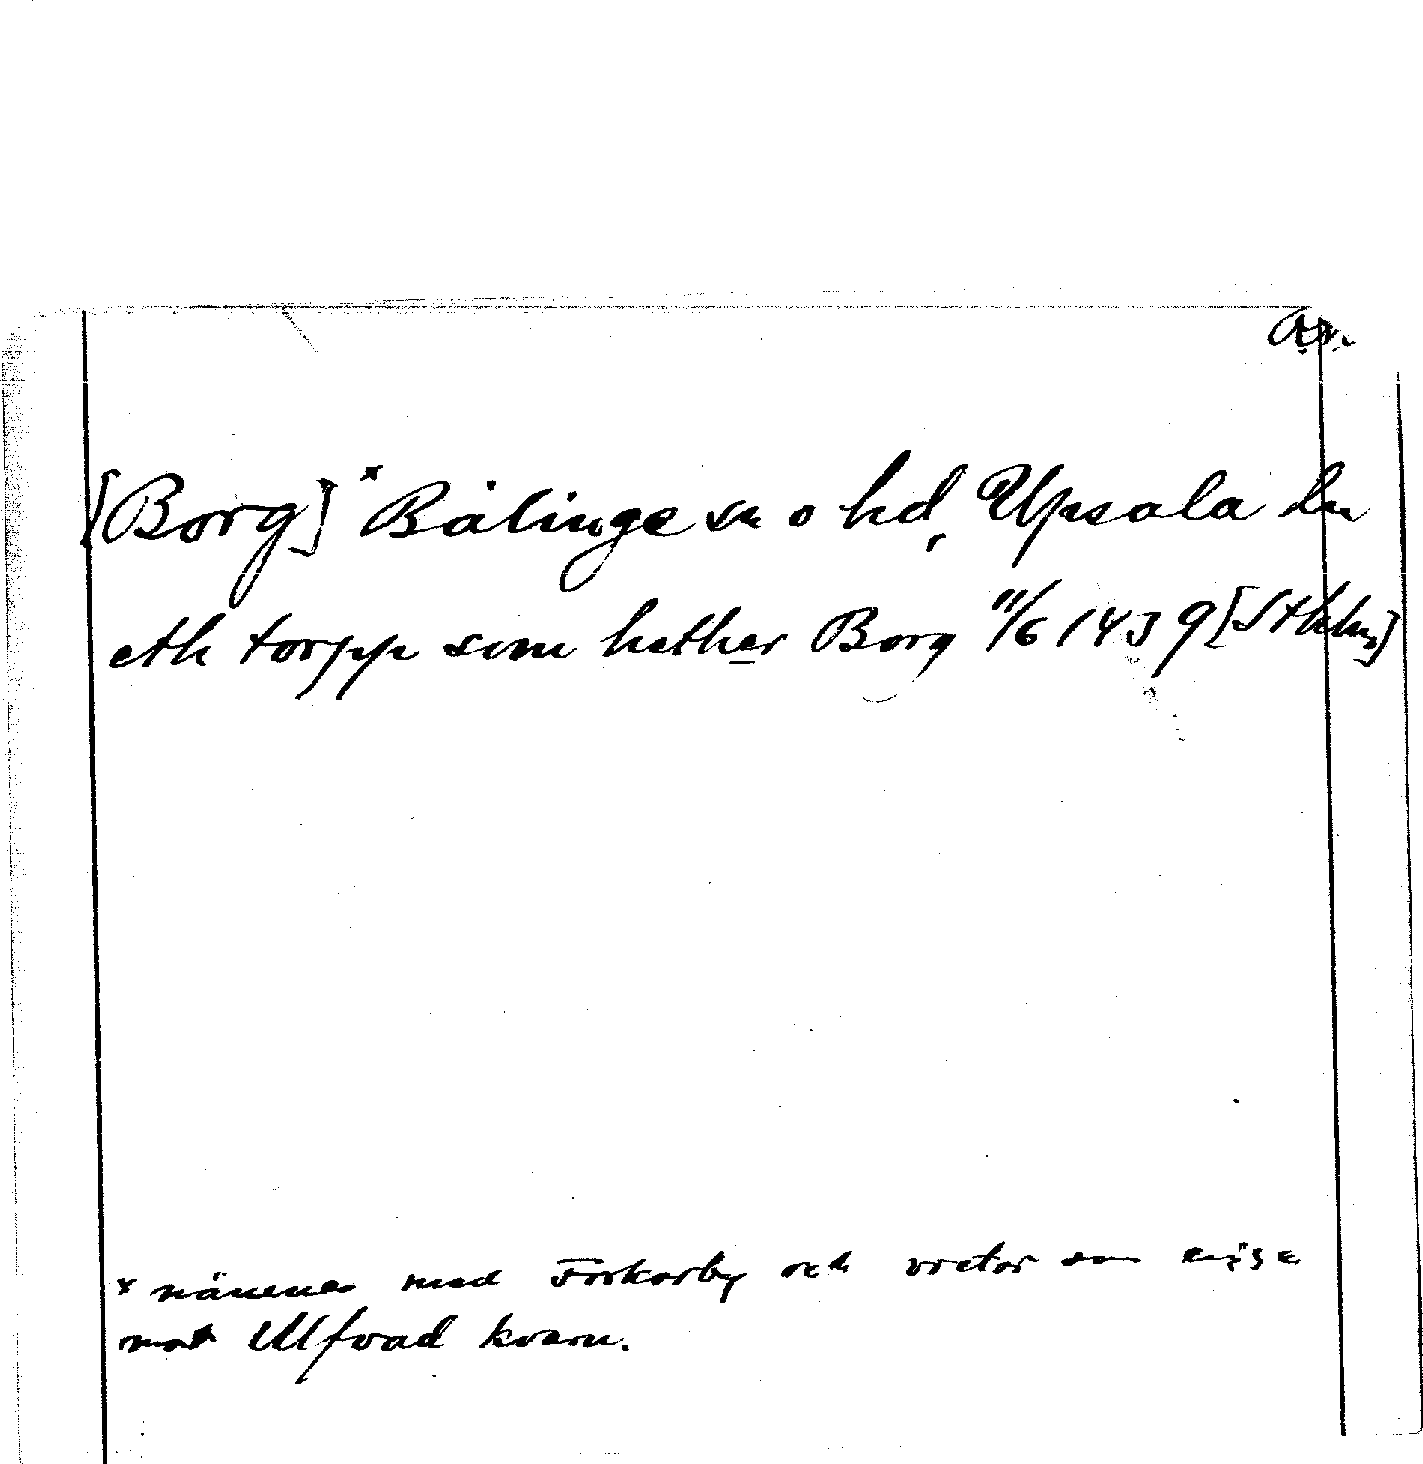 [Borg]ˣ Bälinge sn o hd, Upsala län
eth torpp som hether Borg 11/6 1439 [Sthlm]
x nämnes med Forkarby och vretar som
mot Ulfvad kvarn.